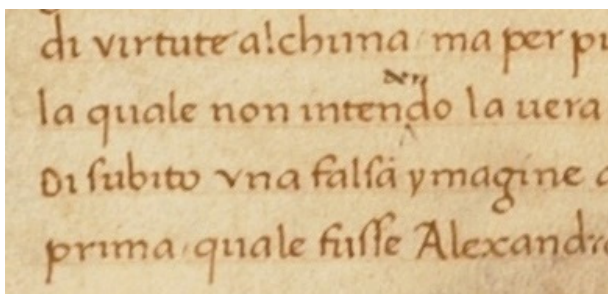 di virtute alchima ma per
la quale non intendo la uera
Di subito vna falsa ymagine
prima quale fusse Alexand